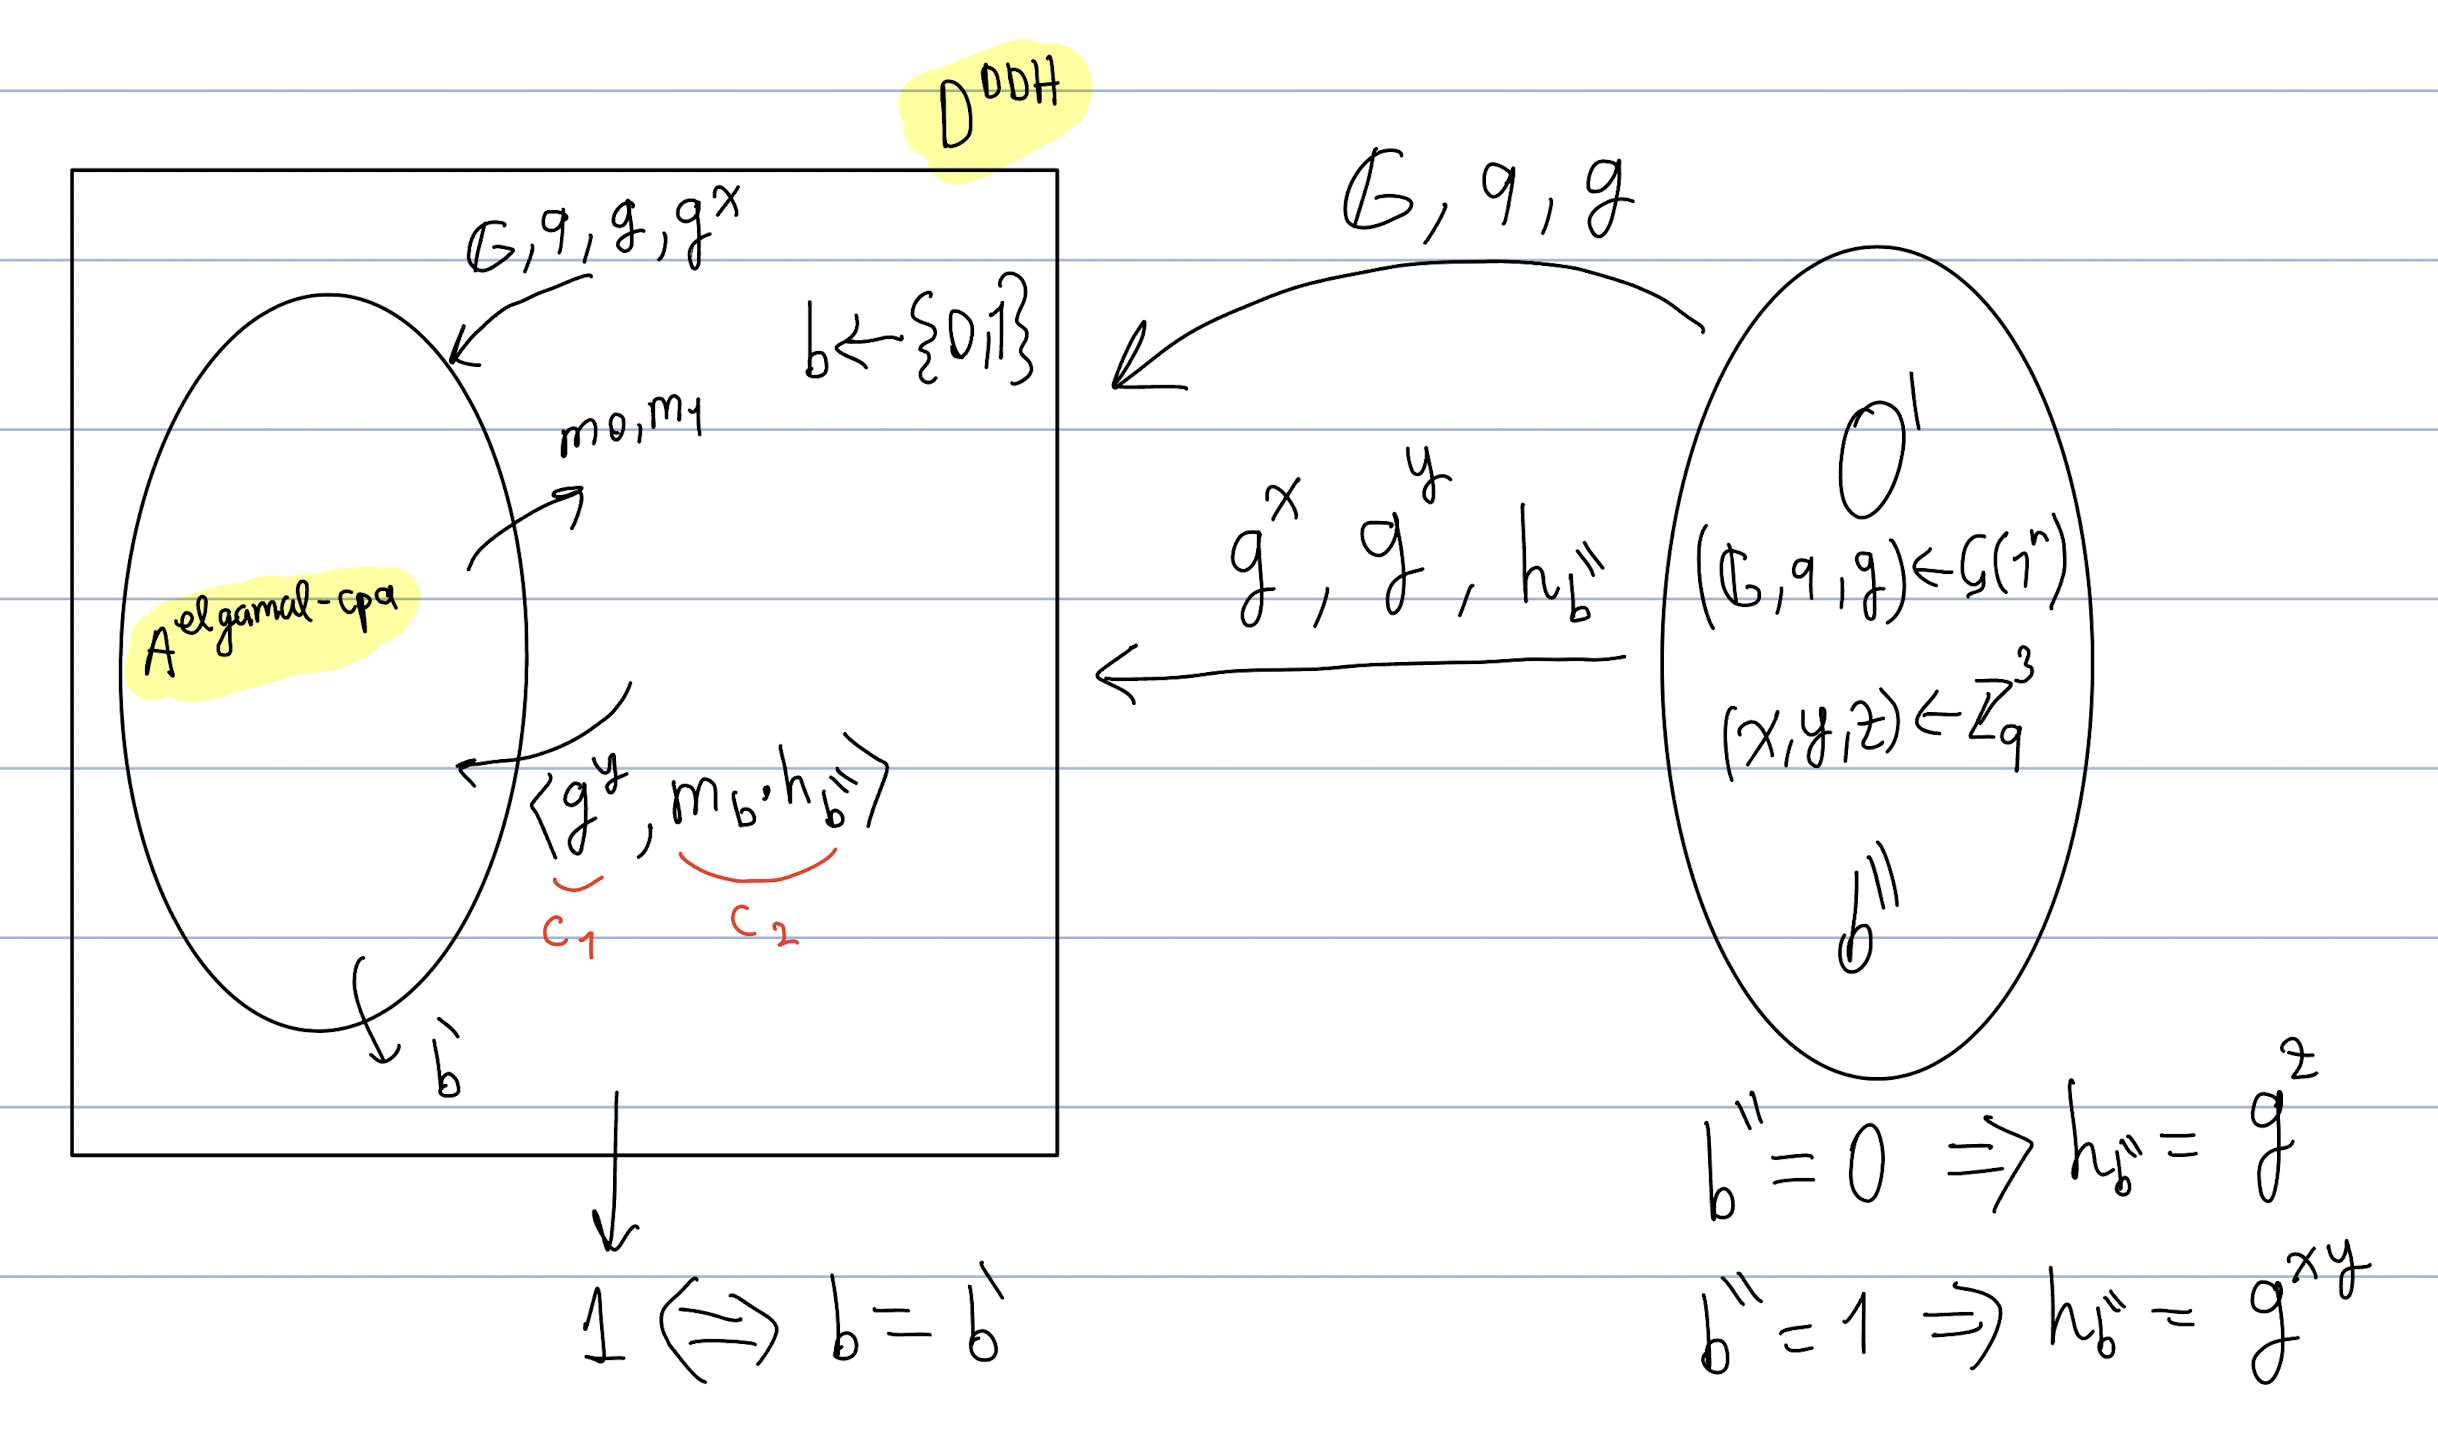 D^DDH
𝔾, q, g, g^x
b ← {0,1}
m0, m1
A^elgamal-cpa
⟨g^y, m_b · h_b''⟩
c1
c2
b'
1 ⟺ b = b'
𝔾, q, g
g^x, g^y, h_b''
O'
(𝔾, q, g) ← G(1^n)
(x, y, z) ← ℤ_q^3
b''
b'' = 0 ⇒ h_b'' = g^z
b'' = 1 ⇒ h_b'' = g^xy